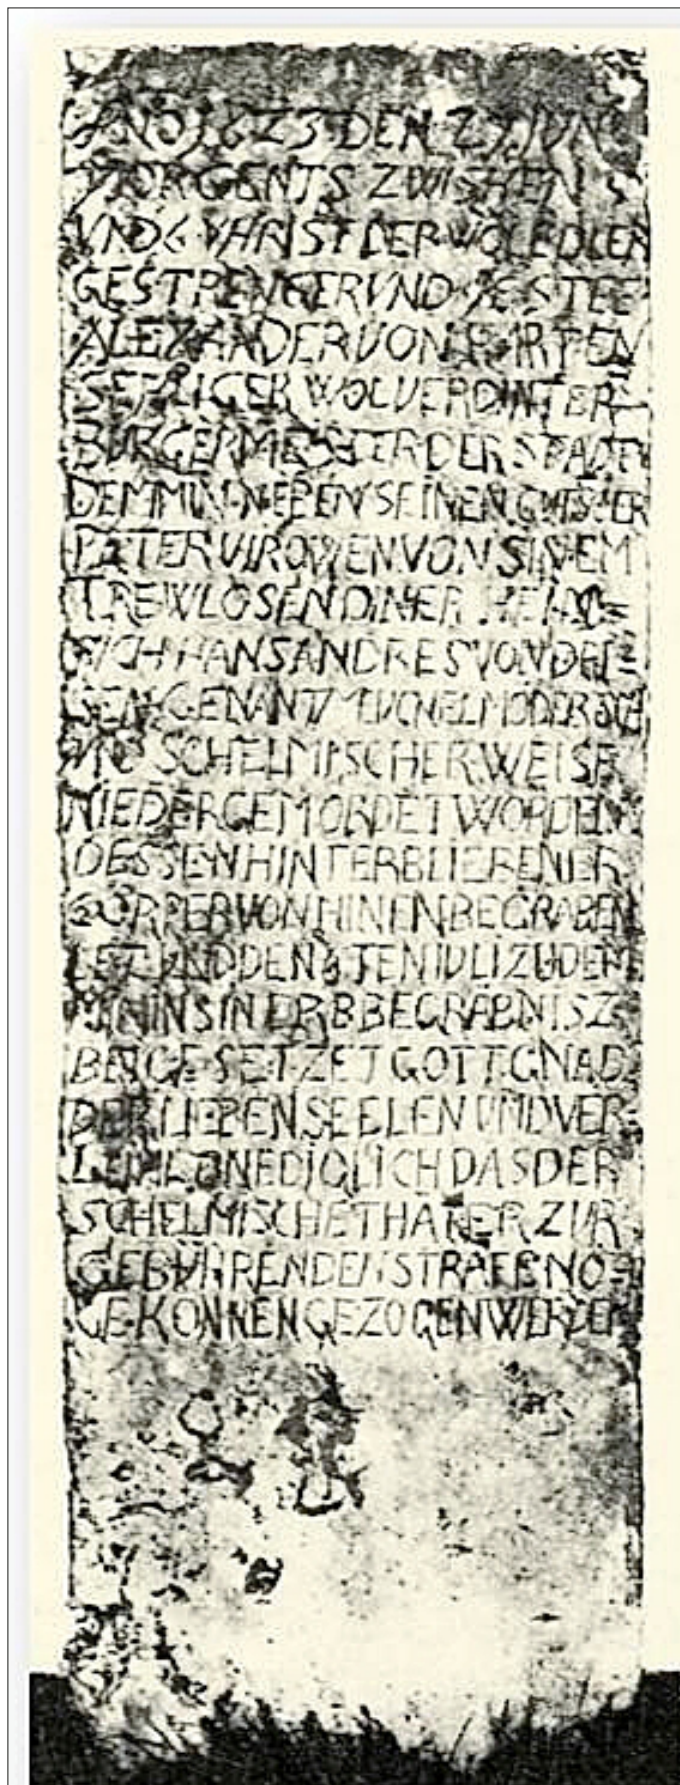 ANO 1623 DEN 27 IUNI
MORGENTS ZWISHEN
VND 6 VHR IST DER WOLEDLER
GESTRENGER VND VESTEE
ALEXANDER VON
SEELIGER WOLVERDINTER
BURGERMEISTER DER STADT
DEMMIN NEBEN SEINEN
PETER VON SINEM
TREWLOSEN DINER HEIN=
RICH HANS ANDRES VON
SEN GENANT MEUCHELMODERSCH
VND SCHELMISCHER WEISE
NIEDERGEMORDET WORDEN
DESSEN HINTERBLIEBENER
CÖRPER VON HINEN BEGRABEN
DEN TEN IULI ZU DEM
MIN IN SIN ERB BEGRÄBNISZ
BEIGESETZET GOTT GNAD
DER LIEBEN SEELEN UND VER
DAS DER
SCHELMISCHE THÄTER ZUR
GEBÜHRENDEN STRAFE
GEKONNEN GEZOGEN WERDEN